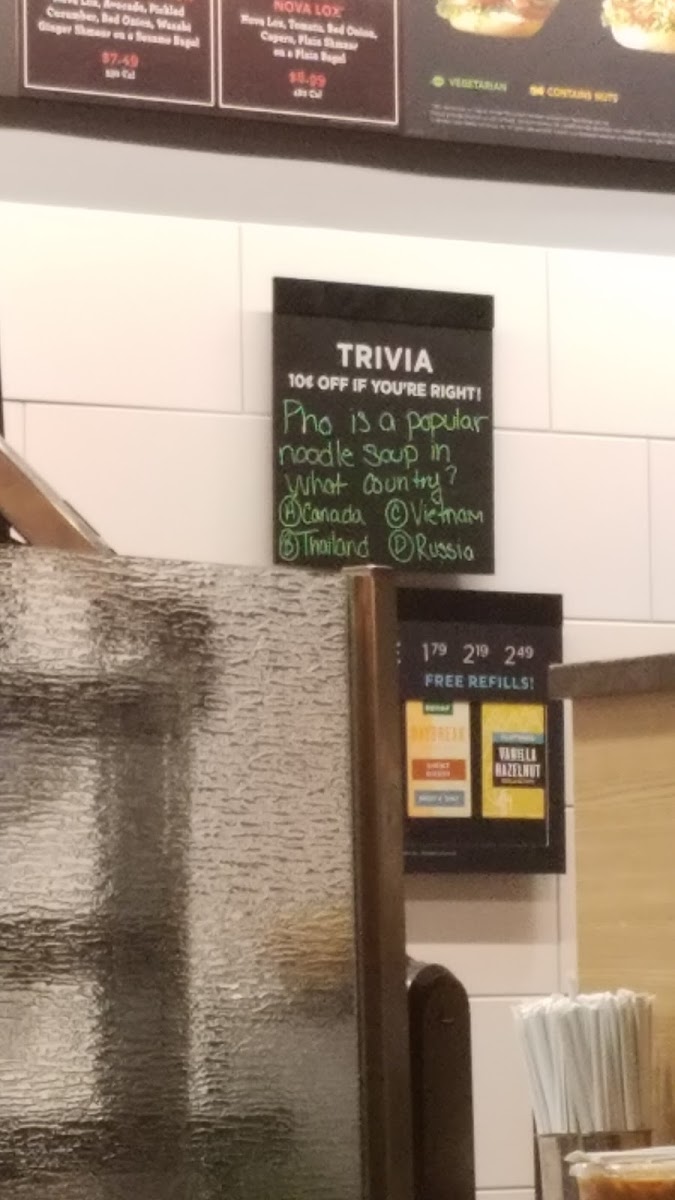 Nova Lox, Avocado, Pickled
Cucumber, Red Onion, Wasabi
Ginger Shmear on a Sesame Bagel
$7.49
NOVA LOX
Nova Lox, Tomato, Red Onion,
Capers, Plain Shmear
on a Plain Bagel
$8.99
VEGETARIAN
CONTAINS NUTS
TRIVIA
10¢ OFF IF YOU'RE RIGHT!
Pho is a popular
noodle soup in
what country?
(A) Canada (C) Vietnam
(B) Thailand (D) Russia
1.79 2.19 2.49
FREE REFILLS!
DECAF
DAYBREAK
VANILLA
HAZELNUT